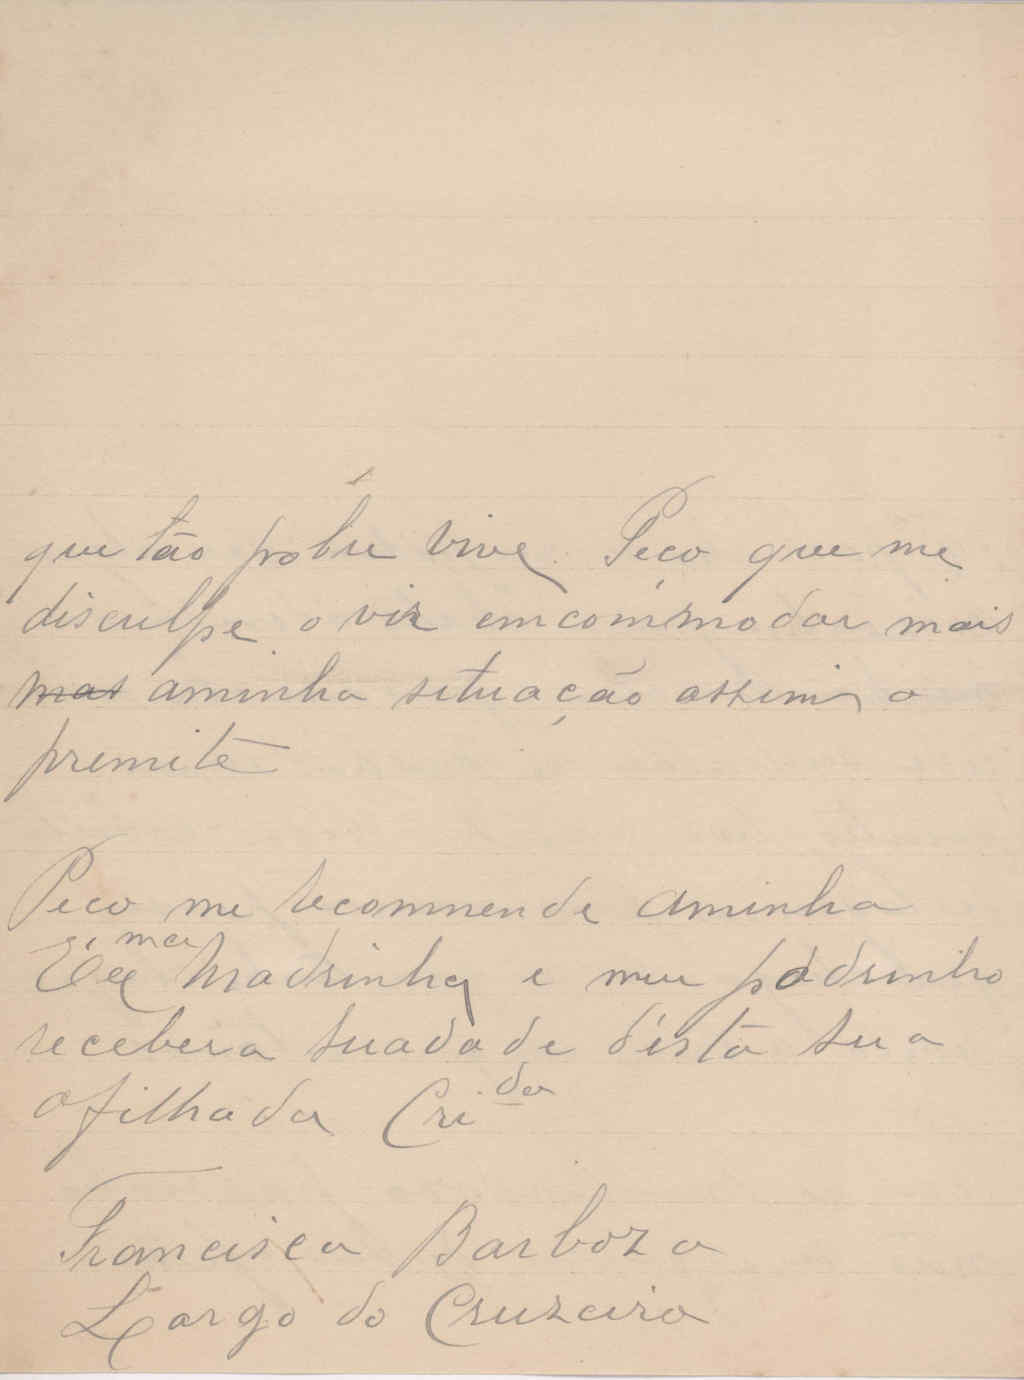 que tão pobre vive. Peço que me
disculpe o vir emcommodar mais
mas aminha situação assim o
premite
Peco me recommende aminha
Exma Madrinha e meu padrinho
recebera suadade désta sua
afilhada Crida
Francisca Barboza
Largo do Cruzeiro